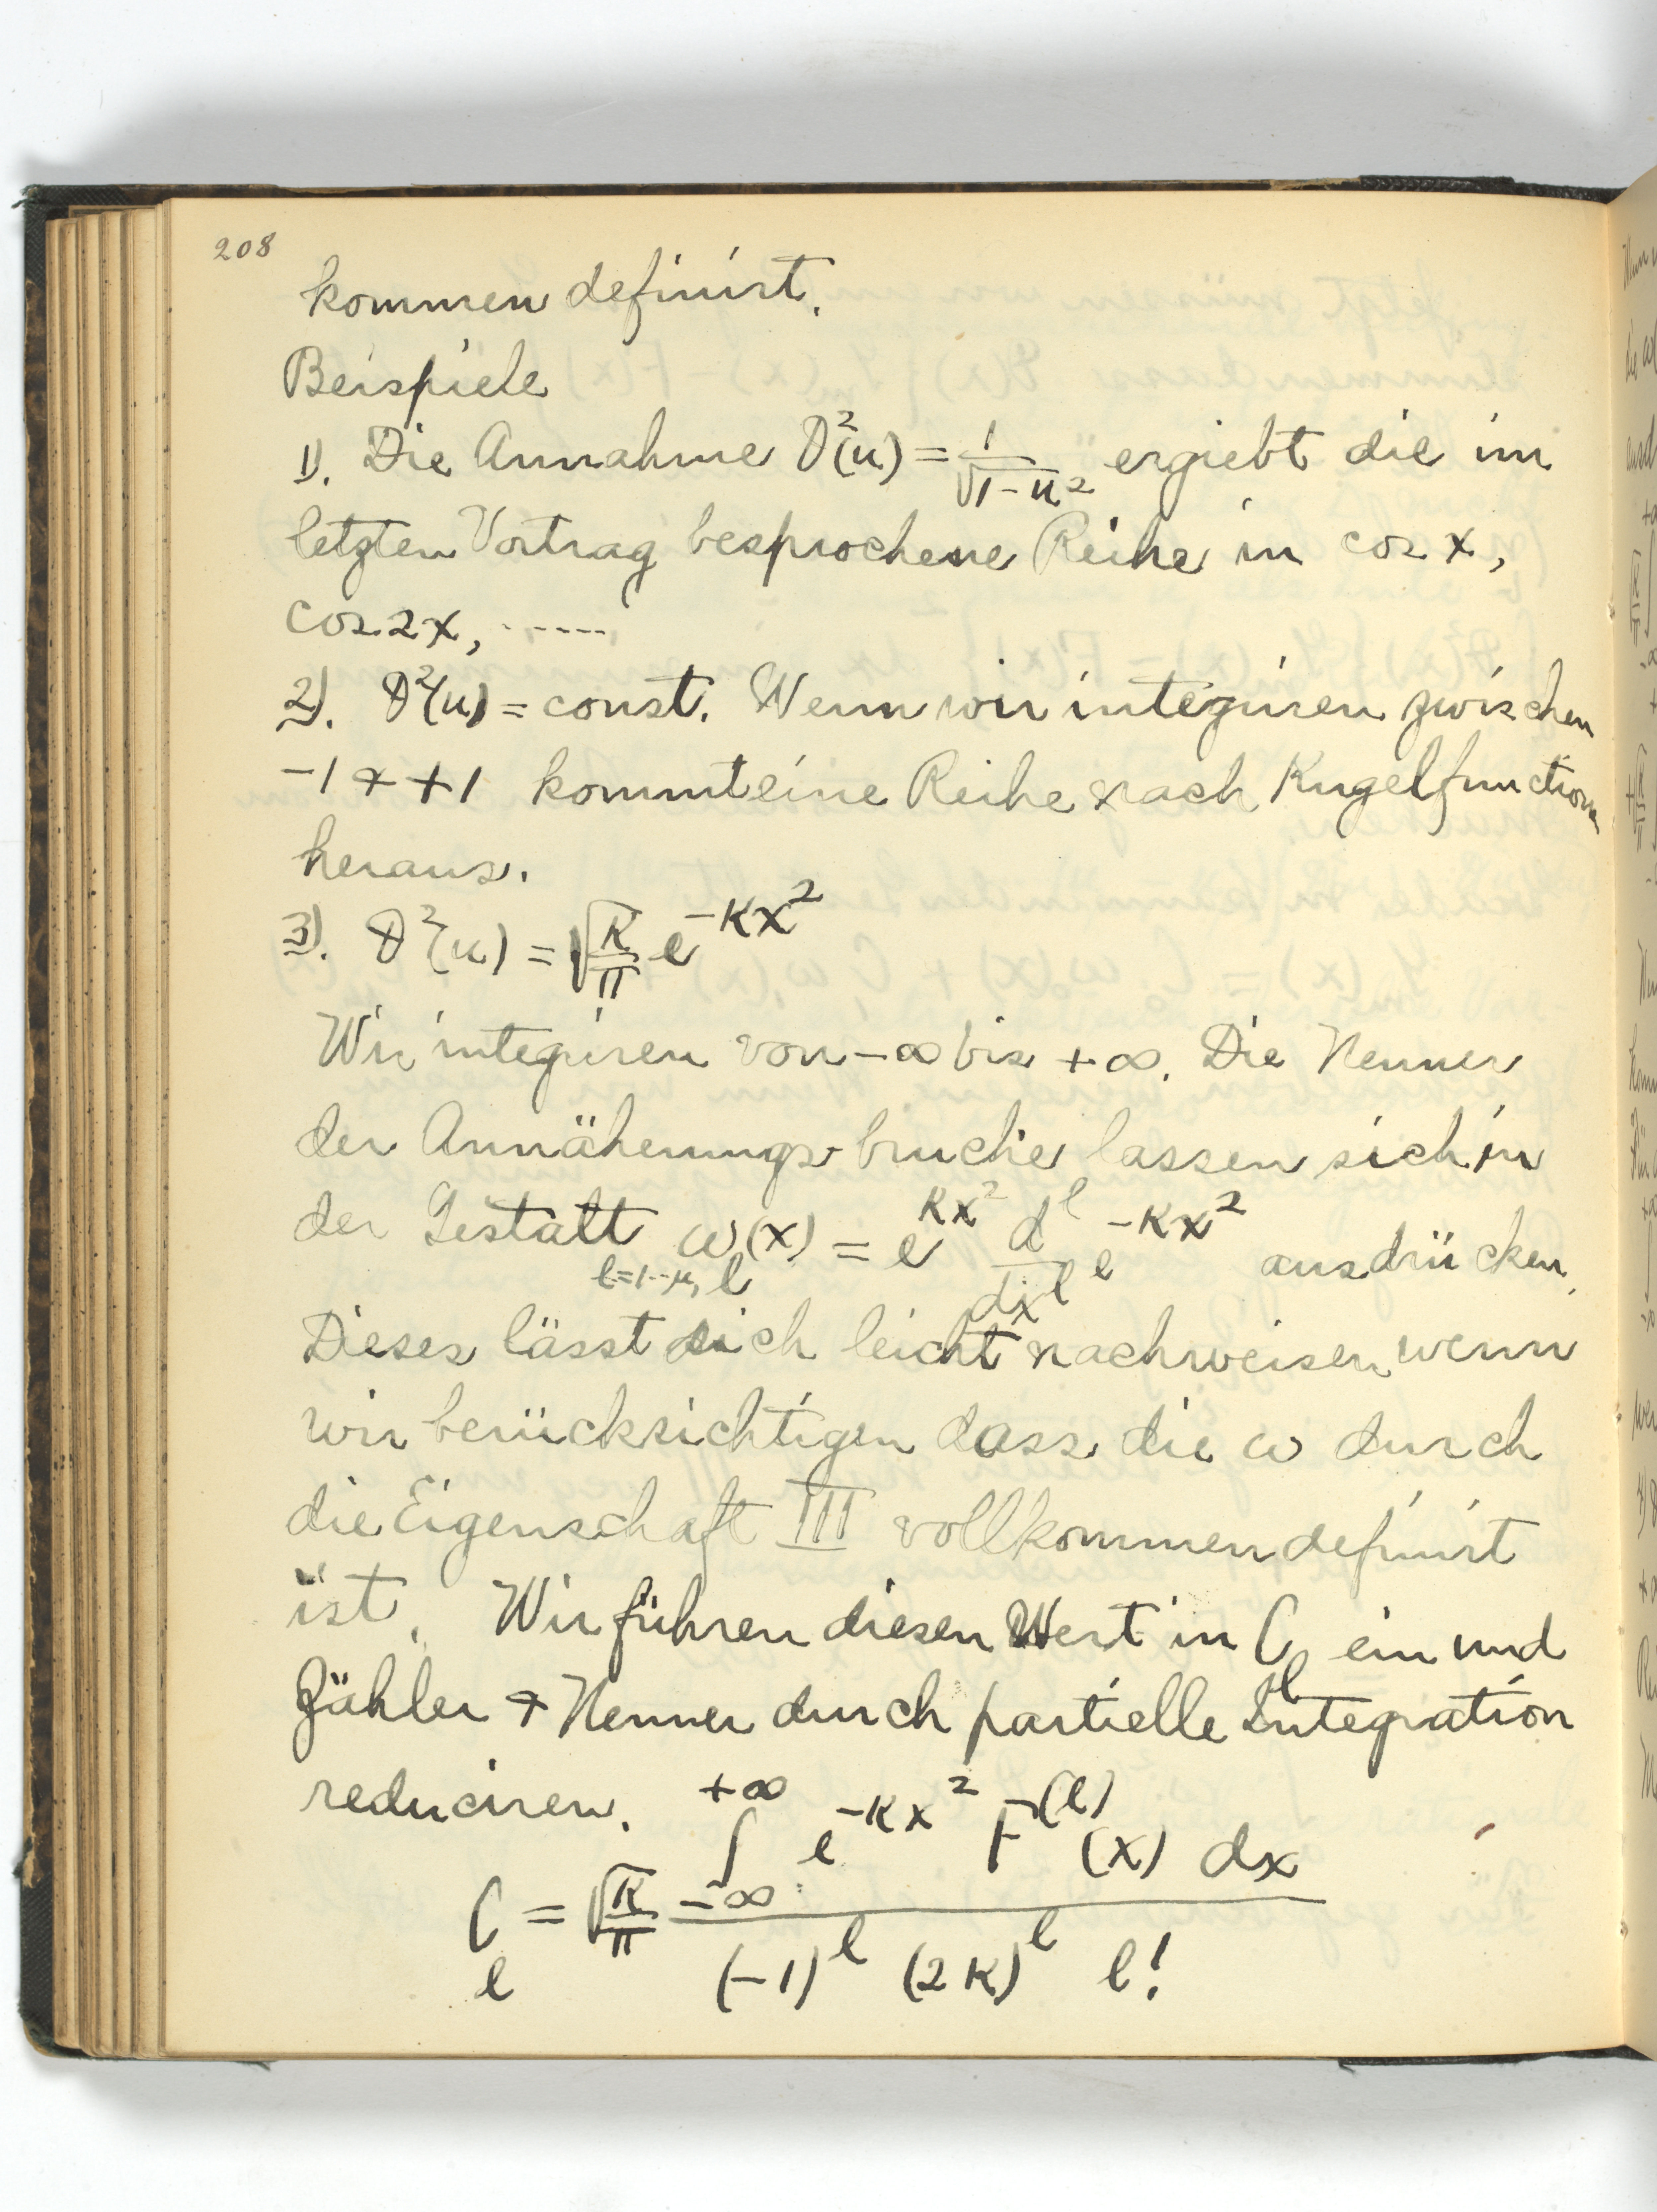 208
kommen definirt.
Beispiele
1). Die Annahme ϑ²(u) = 1/√(1-u²) ergiebt die im
letzten Vortrag besprochene Reihe in cos x,
cos 2x, ------
2). ϑ²(u) = const. Wenn wir integriren zwischen
-1 + +1 kommt eine Reihe nach Kugelfunctionen
heraus.
3). ϑ²(u) = √(K/π) e^(-Kx²)
Wir integriren von -∞ bis +∞. Die Nenner
der Annäherungsbruche lassen sich in
der Gestalt ω_l(x) = e^(Kx²) d^l/dx^l e^(-Kx²) ausdrücken.
l=1--μ
Dieses lässt sich leicht nachweisen wenn
wir berücksichtigen dass die ω durch
die Eigenschaft III vollkommen definirt
ist. Wir führen diesen Wert in C_l ein und
Zähler + Nenner durch partielle Integration
reduciren.
C_l = √(K/π) ∫_{-∞}^{+∞} e^(-Kx²) F^(l)(x) dx / (-1)^l (2K)^l l!